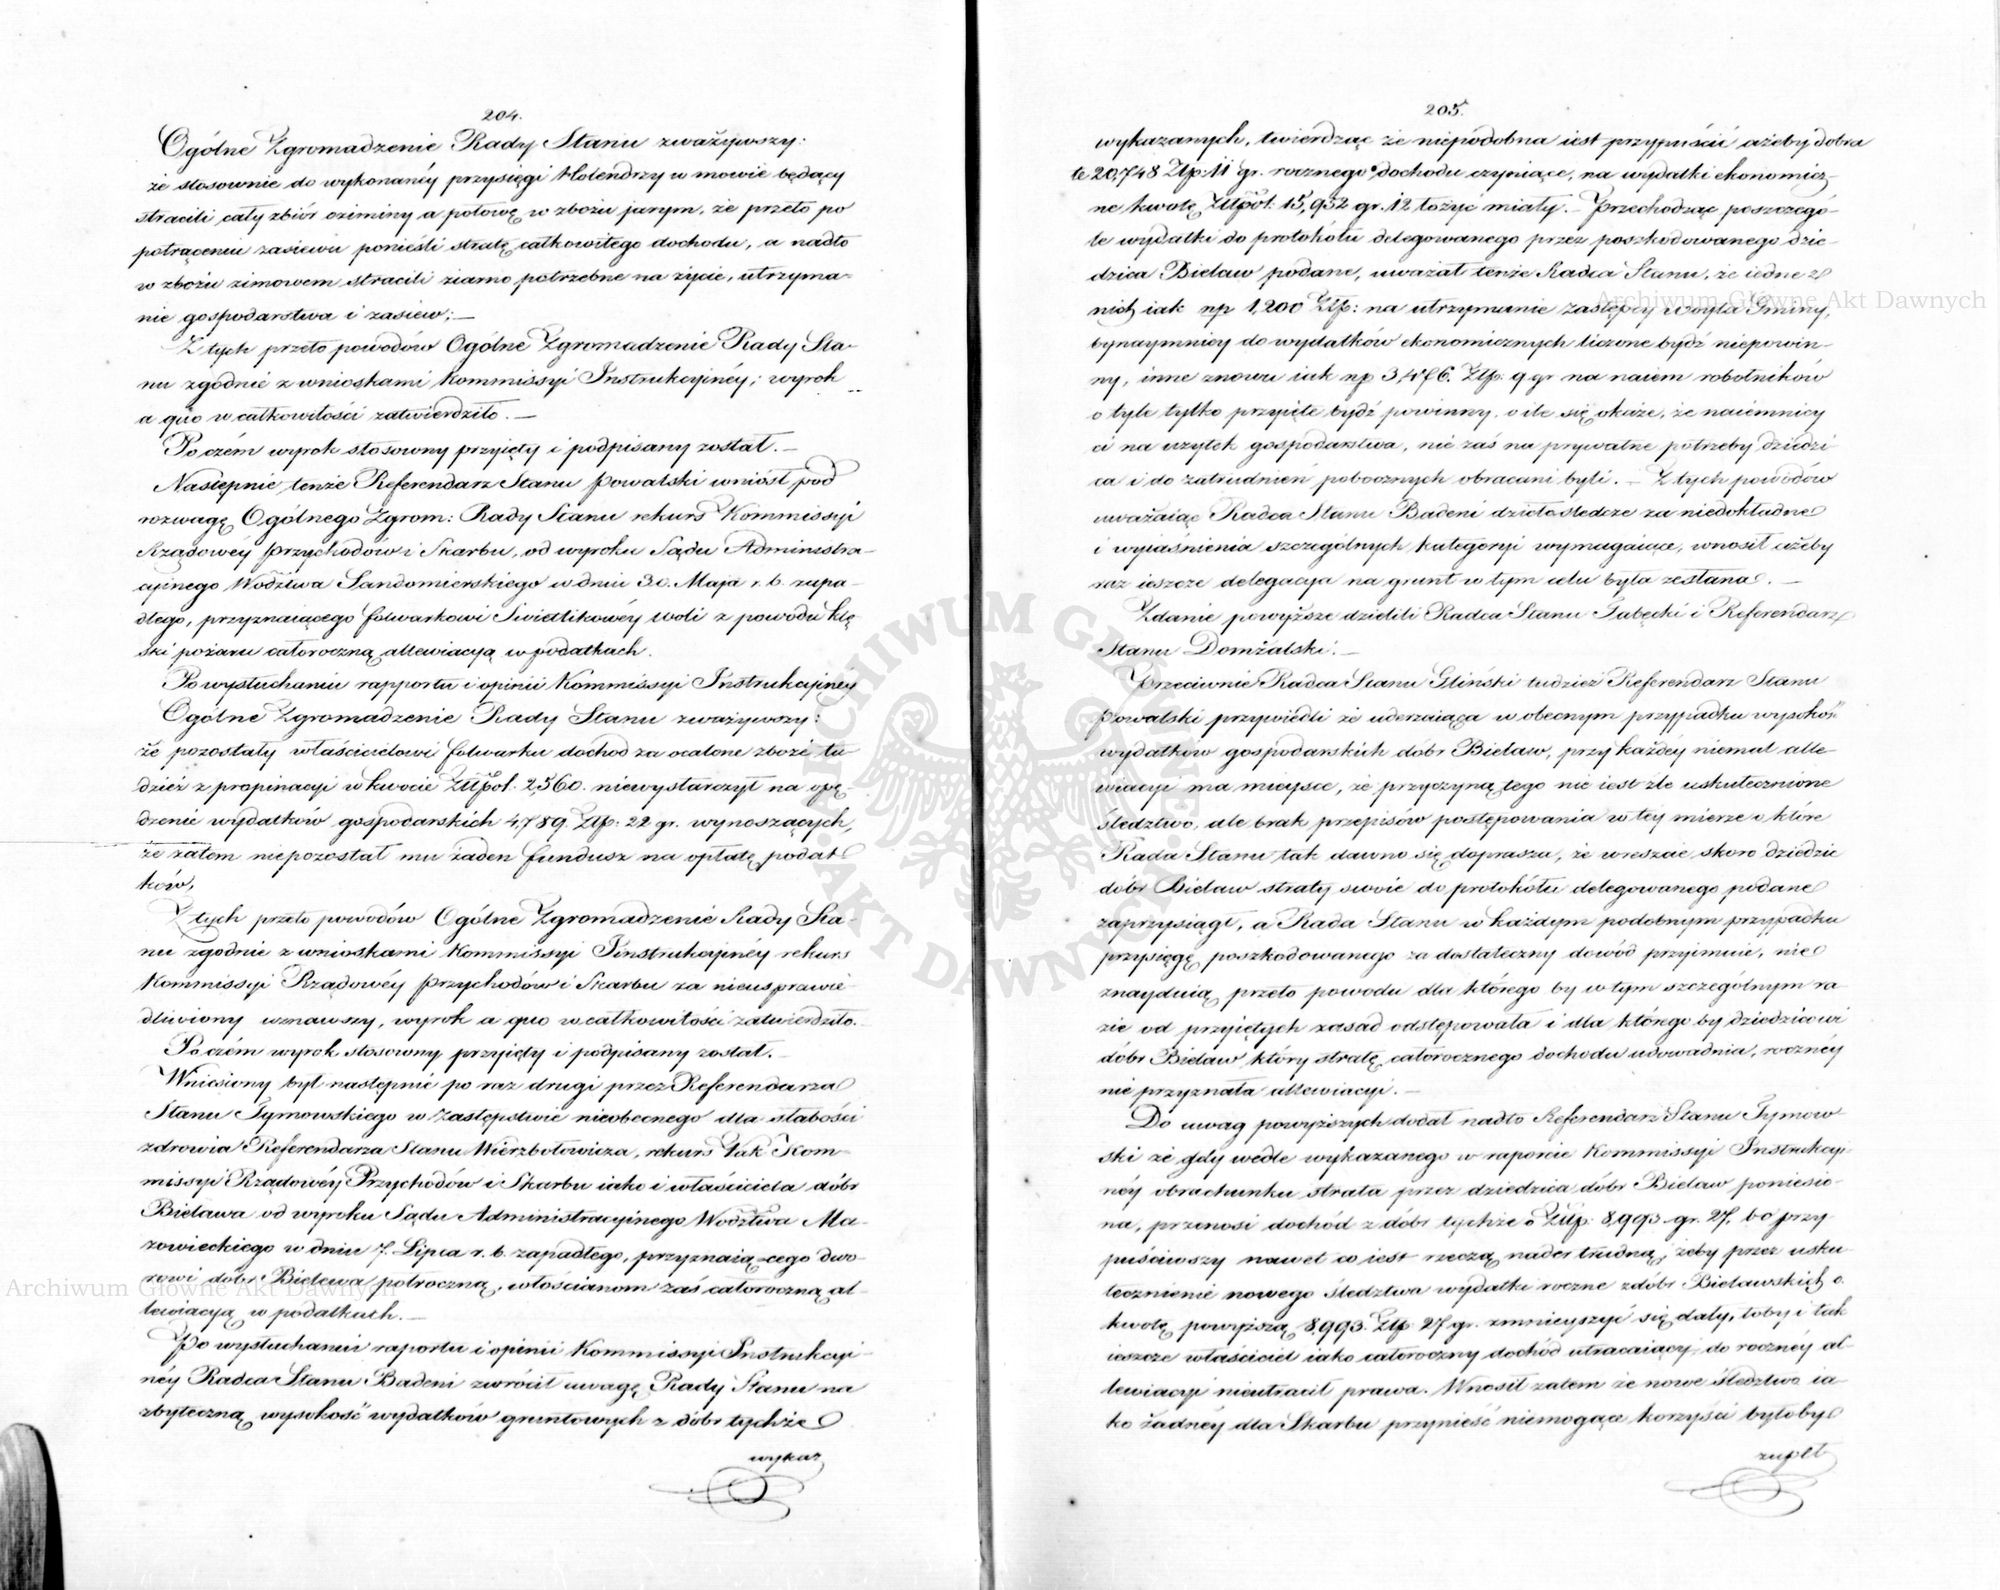 204.
Ogólne Zgromadzenie Rady Stanu zważywszy:
że stosownie do wykonanéy przysięgi Holendrzy w mowie będący
stracili cały zbiór oziminy a połowę w zbożu jarym, że przeto po
potrąceniu zasiewu ponieśli stratę całkowitego dochodu, a nadto
w zbożu zimowem stracili ziarno potrzebne na życie, utrzyma-
nie gospodarstwa i zasiew; —
Z tych przeto powodów Ogólne Zgromadzenie Rady Sta-
nu zgodnie z wnioskami Kommissyi Instrukcyinéy; wyrok
a quo w całkowitości zatwierdziło. —
Poczém wyrok stosowny przyięty i podpisany został. —
Następnie tenże Referendarz Stanu Powalski wniósł pod
rozwagę Ogólnego Zgrom: Rady Stanu rekurs Kommissyi
Rządowéy Przychodów i Skarbu, od wyroku Sądu Administra-
cyinego Wodztwa Sandomierskiego w dniu 30. Maja r. b. zapa-
dłego, przyznaiącego folwarkowi Swietlikowéy Woli z powodu klę
ski pożaru całoroczną allewiacyą w podatkach.
Po wysłuchaniu rapportu i opinii Kommissyi Instrukcyinéy
Ogólne Zgromadzenie Rady Stanu zważywszy:
że pozostały właścicielowi folwarku dochod za ocalone zboże tu
dzież z propinacyi w kwocie Złłpol. 2,560. niewystarczył na opę-
dzenie wydatkow gospodarskich 4,789. Złp: 22 gr. wynoszących,
że zatem niepozostał mu żaden fundusz na opłatę podat
ków,
Z tych przeto powodów Ogólne Zgromadzenie Rady Sta-
nu zgodnie z wnioskami Kommissyi Instrukcyinéy rekurs
Kommissyi Rządowéy Przychodów i Skarbu za nieusprawie-
dliwiony uznawszy, wyrok a quo w całkowitości zatwierdziło.
Poczém wyrok stosowny przyięty i podpisany został. —
Wniesiony był następnie po raz drugi przez Referendarza
Stanu Tymowskiego w zastępstwie nieobecnego dla słabości
zdrowia Referendarza Stanu Wierzbołowicza, rekurs tak Kom-
missyi Rządowéy Przychodów i Skarbu iako i właściciela dóbr
Bielawa od wyroku Sądu Administracyinego Wodztwa Ma-
zowieckiego w dniu 7. Lipca r. b. zapadłego, przyznaią-cego dwo-
rowi dóbr Bielawa półroczną, włościanom zaś całoroczną al-
lewiacyą w podatkach. —
Po wysłuchaniu raportu i opinii Kommissyi Instrukcyi-
néy Radca Stanu Badeni zwrócił uwagę Rady Stanu na
zbyteczną wysokość wydatków gruntowych z dóbr tychże
wykaz
205.
wykazanych, twierdząc że niepodobna iest przypuścić ażeby dobra
te 20,748 Złp: 11 gr. rocznego dochodu czyniące, na wydatki ekonomicz-
ne kwotę Złłpol. 15,952 gr. 12 łożyć miały. — Przechodząc poszczegó-
le wydatki do protokółu delegowanego przez poszkodowanego dzie-
dzica Bielaw podane, uważał tenże Radca Stanu, że iedne z
nich iak np 1,200 Złp: na utrzymanie zastępcy Woyta Gminy,
bynaymniey do wydatków ekonomicznych liczone bydź niepowin-
ny, inne znowu iak np 3,476. Złp: 9 gr na naiem robotników
o tyle tylko przyięte bydź powinny, o ile się okaże, że naiemnicy
ci na użytek gospodarstwa, nie zaś na prywatne potrzeby dziedzi
ca i do zatrudnień pobocznych obracani byli. — Z tych powodów
uważaiąc Radca Stanu Badeni dzieło śledcze za niedokładne
i wyiaśnienia szczególnych kategoryi wymagaiące, wnosił ażeby
raz ieszcze delegacya na grunt w tym celu była zesłana. —
Zdanie powyższe dzielili Radca Stanu Tabęcki i Referendarz
Stanu Domżalski. —
Przeciwnie Radca Stanu Gliński tudzież Referendarz Stanu
Powalski przywiedli że uderzaiąca w obecnym przypadku wysokość
wydatków gospodarskich dóbr Bielaw, przy każdéy niemal alle-
wiacyi ma mieysce, że przyczyną tego nie iest źle uskutecznione
śledztwo, ale brak przepisów postępowania w téy mierze o które
Rada Stanu tak dawno się doprasza, że wreszcie, skoro dziedzic
dóbr Bielaw straty swoie do protokółu delegowanego podane
zaprzysiągł, a Rada Stanu w każdym podobnym przypadku
przysięgę poszkodowanego za dostateczny dowód przyimuie, nie
znayduią przeto powodu dla którego by w tym szczególnym ra-
zie od przyiętych zasad odstępowała i dla którego by dziedzicowi
dóbr Bielaw który stratę całorocznego dochodu udowadnia, roczney
nie przyznała allewiacyi. —
Do uwag powyższych dodał nadto Referendarz Stanu Tymow
ski że gdy wedle wykazanego w raporcie Kommissyi Instrukcyi-
néy obrachunku strata przez dziedzica dóbr Bielaw poniesio-
na, przenosi dochód z dóbr tychże o Złłp: 8,993. gr. 27, bo przy
puściwszy nawet co iest rzeczą nader trudną, żeby przez usku
tecznienie nowego śledztwa wydatki roczne z dóbr Bielawskich o
kwotę powyższą 8,993. Złp: 27 gr. zmnieyszyć się dały, toby i tak
ieszcze właściciel iako całoroczny dochód utracaiący, do rocznéy al-
lewiacyi nieutracił prawa. Wnosił zatem że nowe śledztwo ia-
ko żadnéy dla Skarbu przynieść niemogące korzyści byłoby
zupeł
Archiwum Główne Akt Dawnych
Archiwum Główne Akt Dawnych
ARCHIWUM GŁÓWNE AKT DAWNYCH